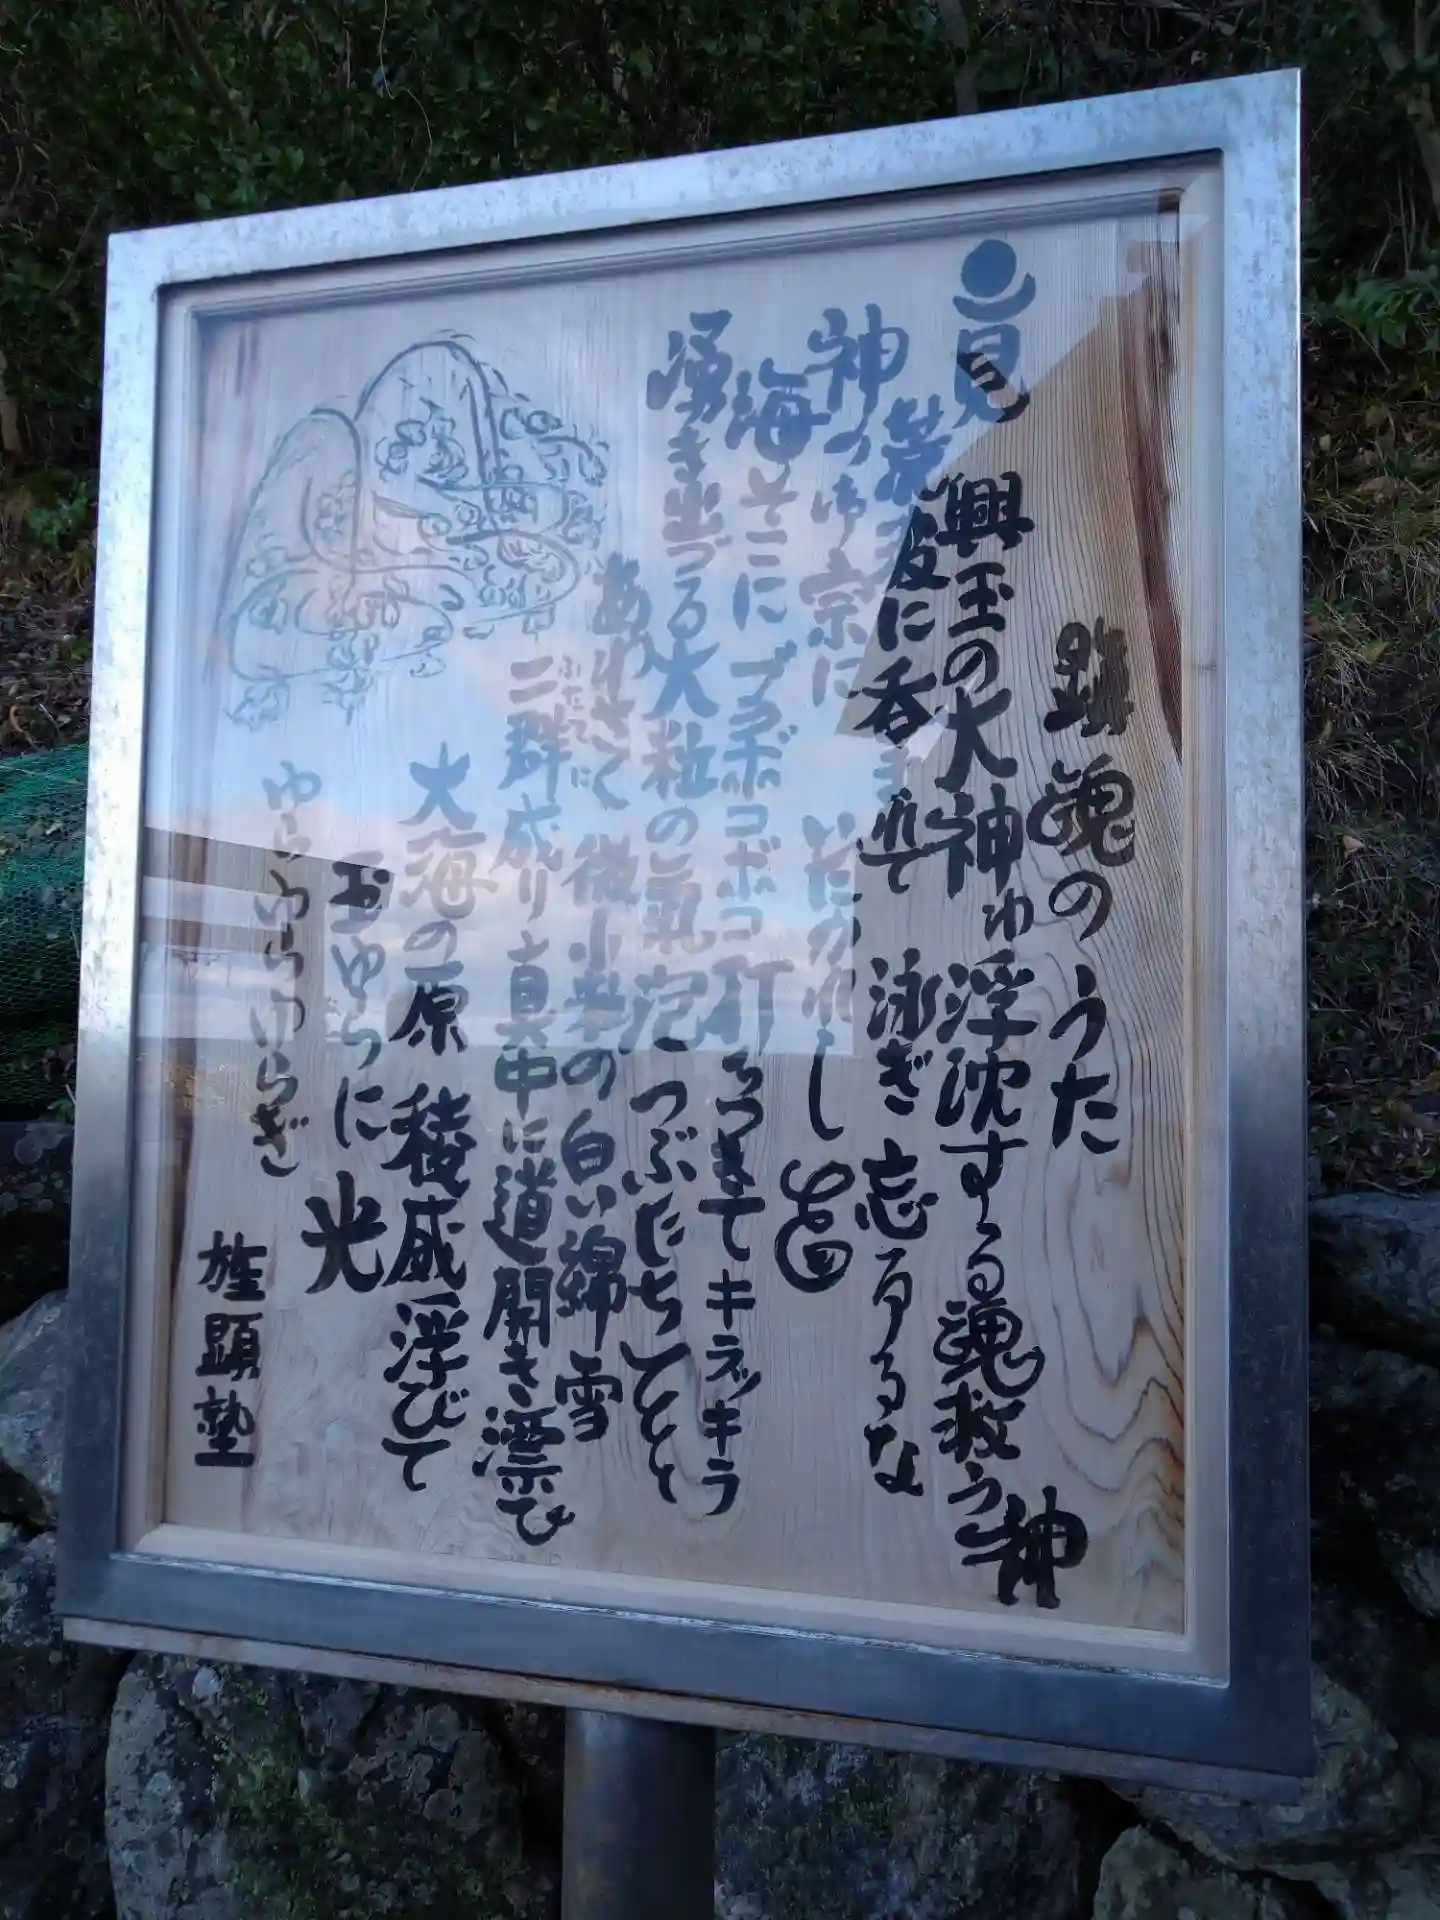 鎮魂のうた
見 興玉の大神は 浮沈する魂救う神
荒波に呑まれて 泳ぎ忘るるな
神の御宗に いだかれし
海そこに ブクボコボコ 打ちつきて キラッキラ
湧き出づる大粒の氣泡 つぶだちて
ありて 微小の白い綿雪
二群成り 真中に道開き 漂ひ
大海の原 稜威浮びて
玉ゆらに 光
ゆらゆらゆらぎ
顕塾